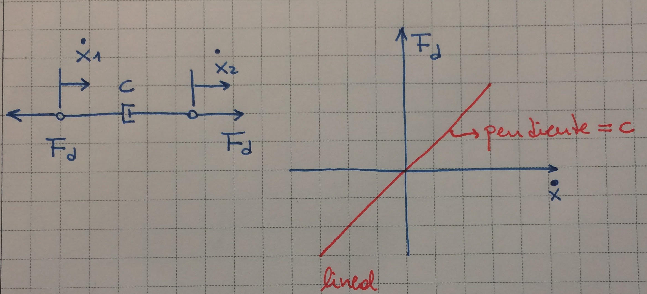 ẋ1
ẋ2
c
Fd
Fd
Fd
pendiente = c
ẋ
lineal